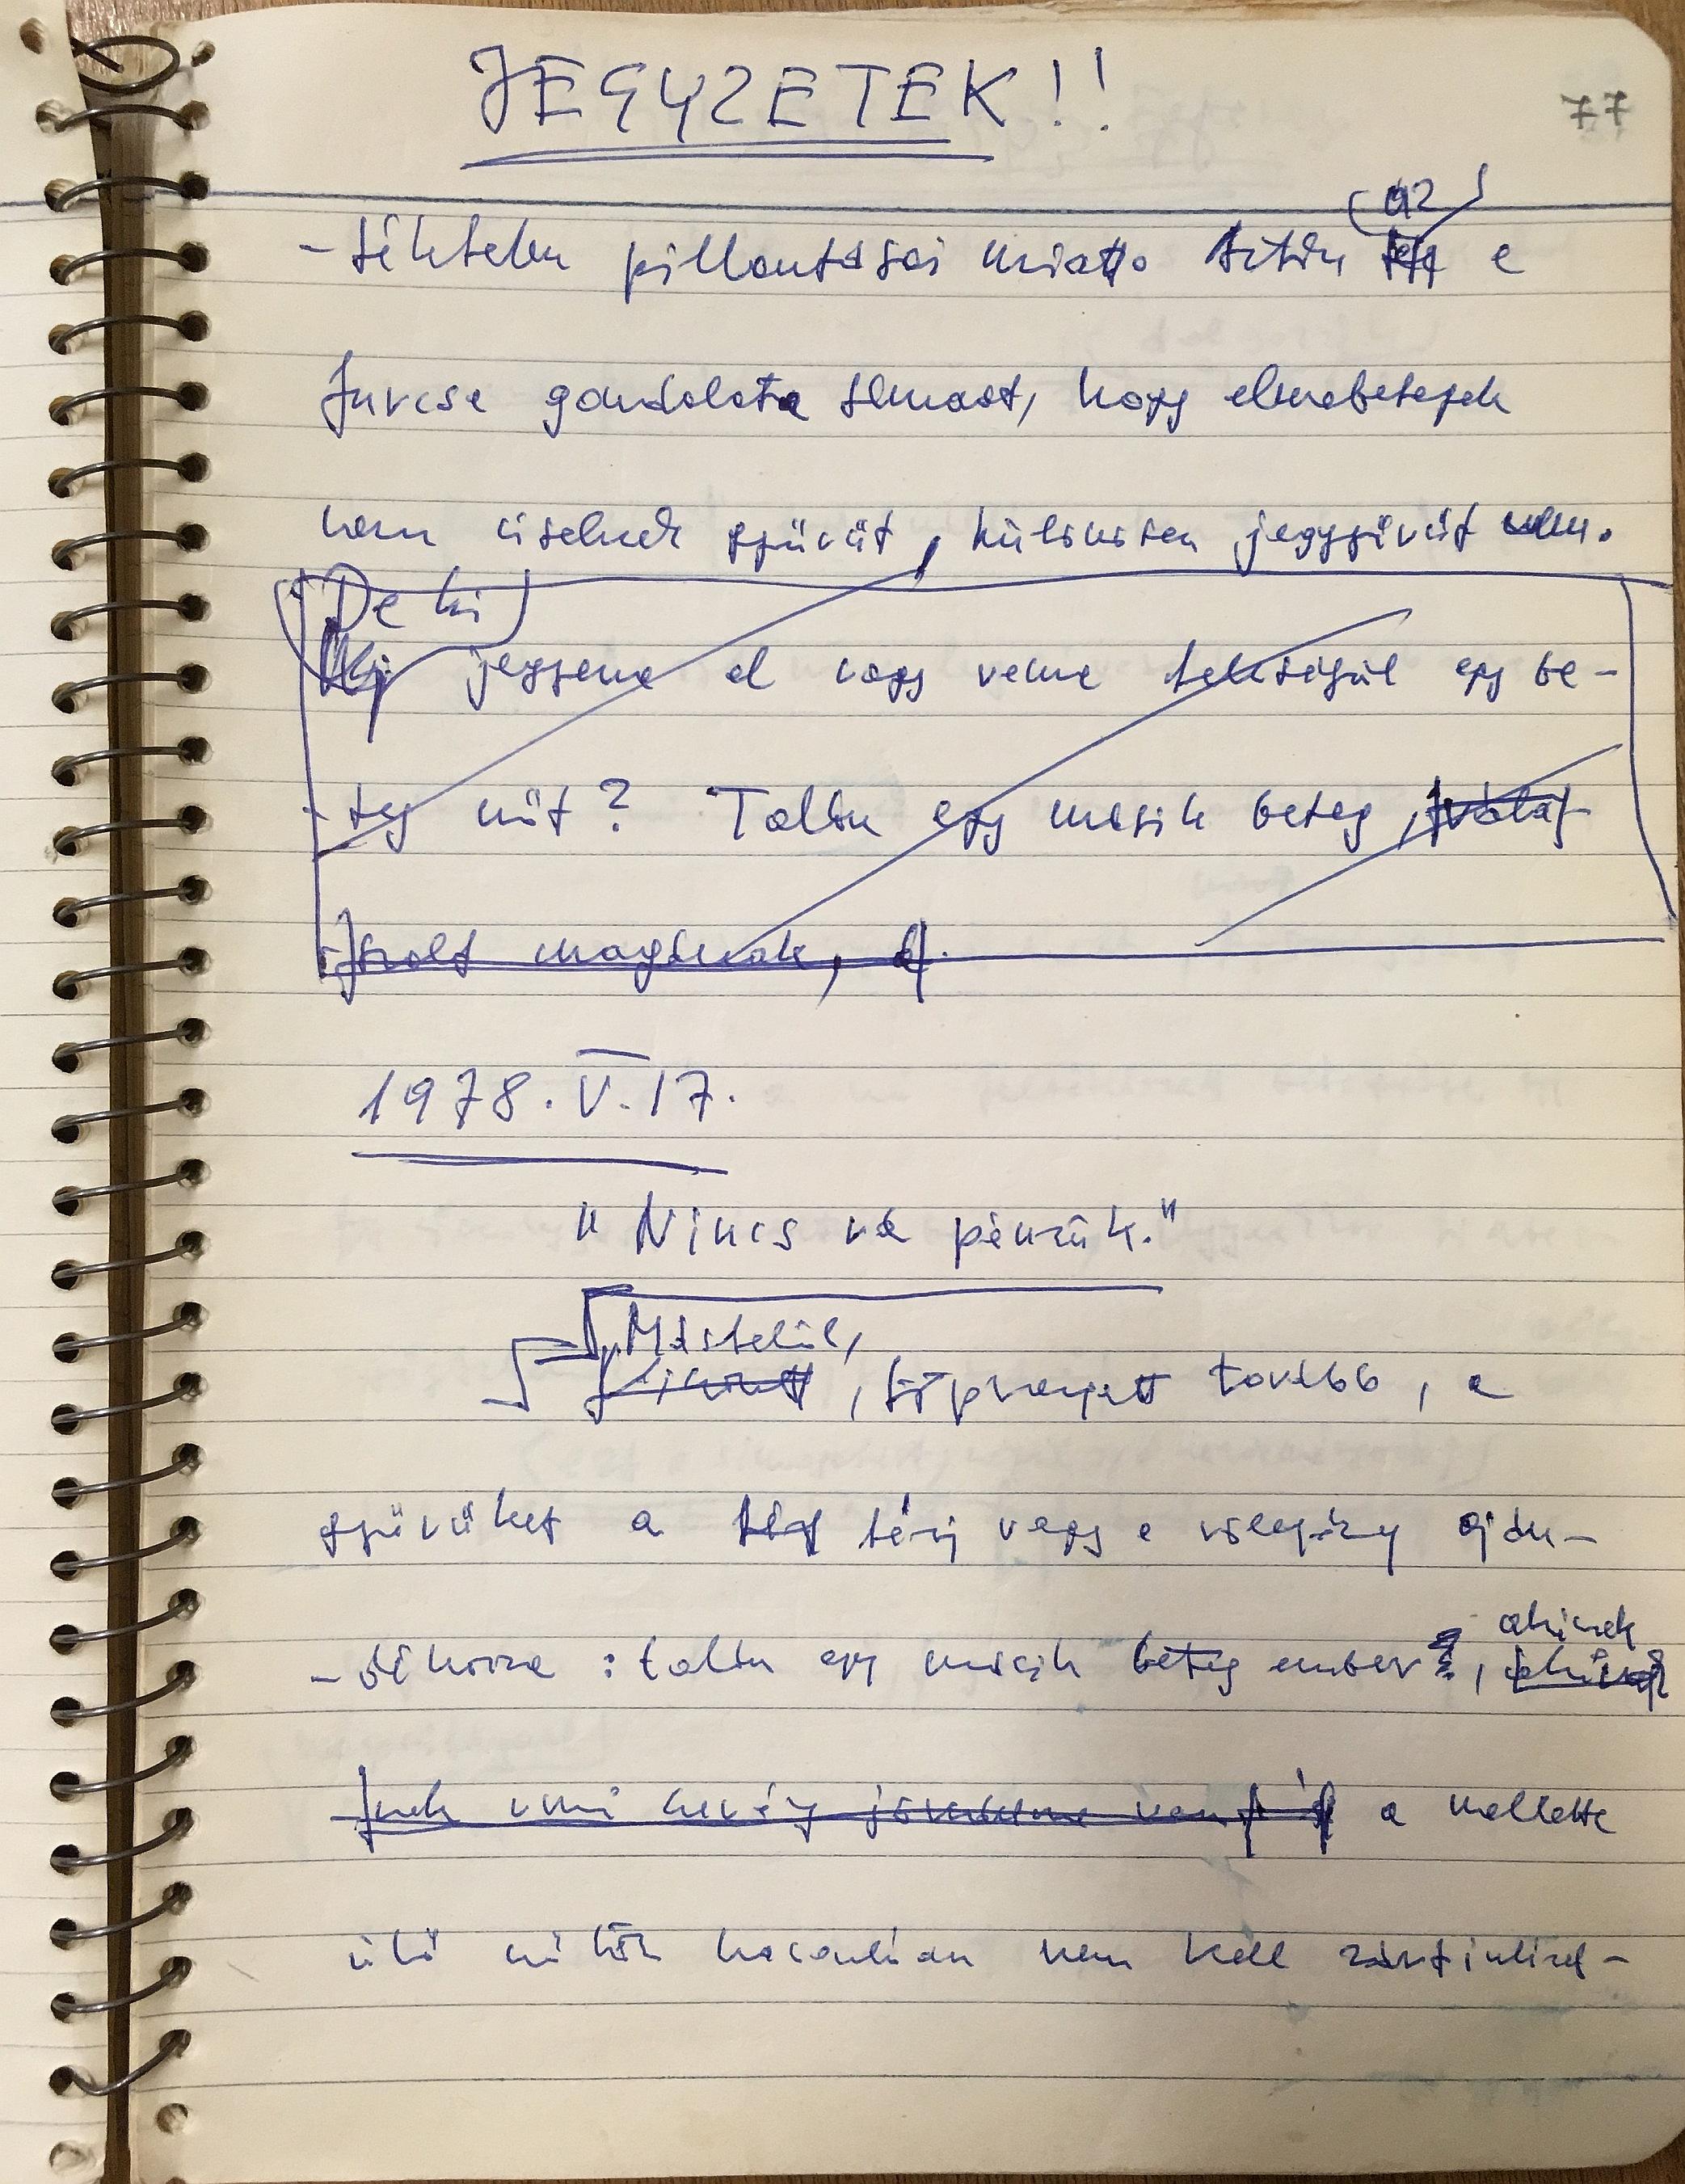 JEGYZETEK!!
77
az
-téktelen pillantásai miatt. Aztán e
furcsa gondolata támadt, hogy elmebetegek
nem viselnek gyűrűt, különösen jegygyűrűt nem.
De ki
Ki jegyezne el vagy venne feleségül egy be-
-teg nőt? Talán egy másik beteg,
magának,
1978. V. 17.
"Nincs rá pénzük."
Másfelül,
, töprengett tovább, a
gyűrűket a férj vagy a vőlegény ajdn-
-dékozza: talán egy másik beteg ember, akinek
a mellette
ülő nőhöz hasonlóan nem kell zártintézet-